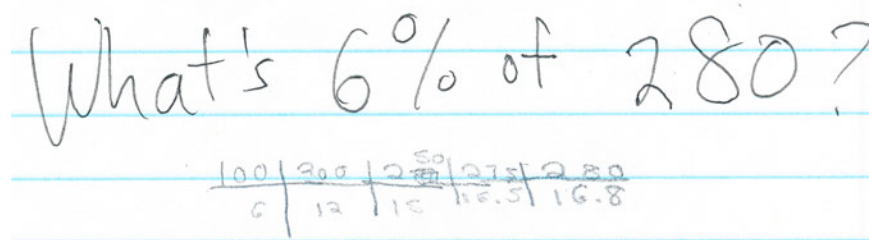 What's 6% of 280?
100 | 200 | 250 | 275 | 280
6 | 12 | 15 | 16.5 | 16.8